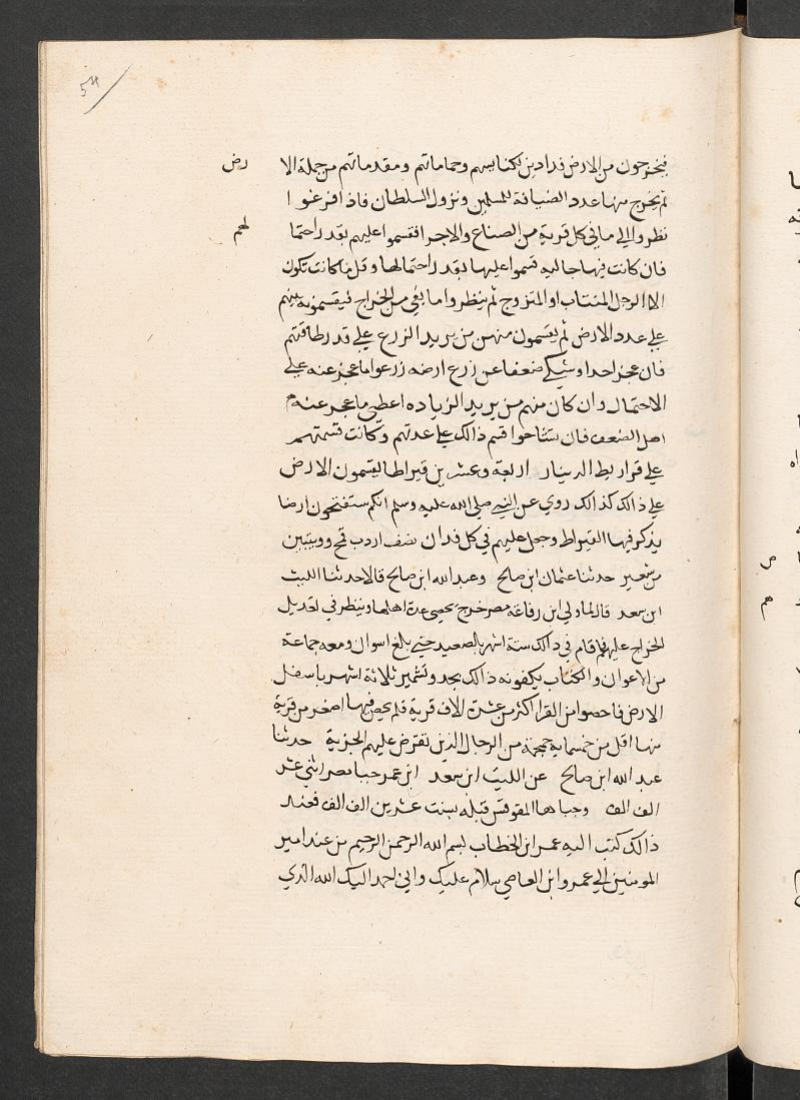 54
فيخرجون من الارض فدادين لكنايسهم وحماماتهم ومقدماتهم من جملة الا رض
ثم يخرج منها عدد الضيافة للمسلمين ونزول السلطان فاذا فرغوا ا
نظروا الي ما في كل قرية من الصناع والاجرا فقسموا عليهم بقدر احتما لهم
فان كانت فيها جاليه قسموا عليها بقدر احتمالها وقل ما كانت تكون
الا الرجل المنتاب او المتزوج ثم ينظروا ما بقي من الخراج فيقسمونه بينهم
علي عدد الارض ثم يقسمون منهس من يريد الزرع علي قدر طاقتهم
فان عجز احد او شيكي ضعفا عن زرع ارضه زرعوا ما عجز عنه علي
الاحتمال وان كان منهم من يريد الزياده اعطي ما عجز عنه م
اهل الضعف فان تشاحوا قسم ذالك علي عدتهم وكانت قسمتهم
علي قراريط الدينار اربعة وعشرين قيراطا يقسمون الارض
علي ذالك كذالك روي عن النبي صلي الله عليه وسلم انكم ستفتحون ارضا
يذكر فيها القيراط وجعل عليهم في كل فدان نصف اردب قمح وويبتين
من شعير حدثنا عثمان ابن صالح وعبد الله ابن صالح قالا حدثنا الليث
ابن سعد قال لما ولي ابن رفاعة مصر خرج يحصي عدة اهلها وينظر في تعديل
الخراج عليهم فاقام في ذالك ستة اشهر بالصعيد حتي بلغ اسوان ومعه جماعة
من الاعوان والكتاب يكفونه ذالك بجد وتشمير ثلاثة اشهر باسفل
الارض فاحصوا من القرا اكثر من عشرة الاف قرية فلم يحص فيها اصغر من قرية
منها اقل من خمسماية جمجمة من الرجال الذين تفترض عليهم الجزية حدثنا
عبد الله ابن صالح عن الليث ابن سعد ابن عمر جبا مصر اثني عشر
الف الف وجباها المقوقس قبله بسنت عشرين الف الف فعند
ذالك كتب اليه عمر ابن الخطاب بسم الله الرحمن الرحيم من عند امير
المومنين الي عمرو ابن العاصي سلام عليك واني احمد اليك الله الذي